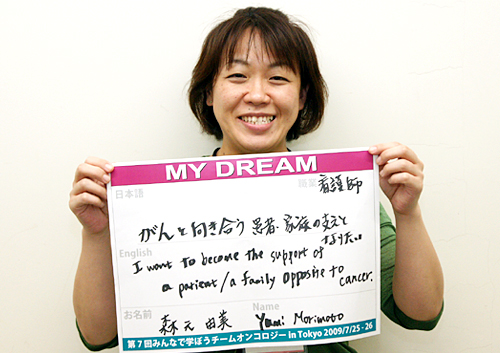 MY DREAM
日本語
職業 看護師
がんと向き合う患者・家族の支えと
なりたい。
English
I want to become the support of
a parient/a family opposite to cancer.
お名前
Name
森元 由美 Yumi Morimoto
第7回みんなで学ぼうチームオンコロジー in Tokyo 2009/7/25・26